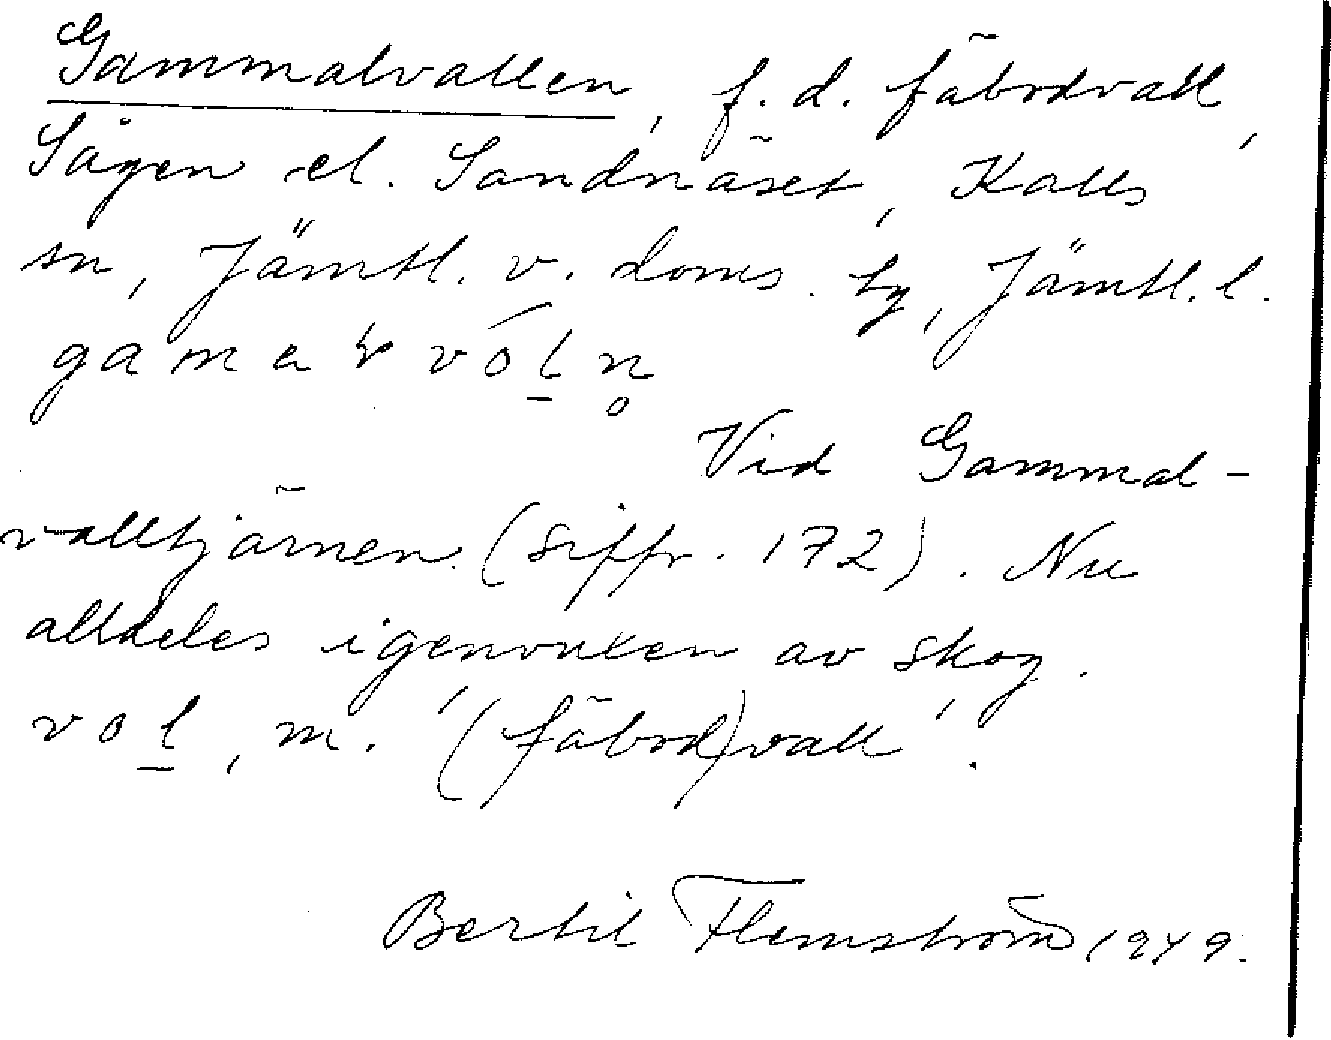 Gammalvallen, f. d. fäbodvall,
Sågen el. Sandnäset, Kalls
sn, Jämtl. v. doms. tg, Jämtl. l.
Vid Gammal-
valltjärnen (siffr. 172). Nu
alldeles igenvuxen av skog.
vol, m. '(fäbod)vall'.
Bertil Flemström 1949.